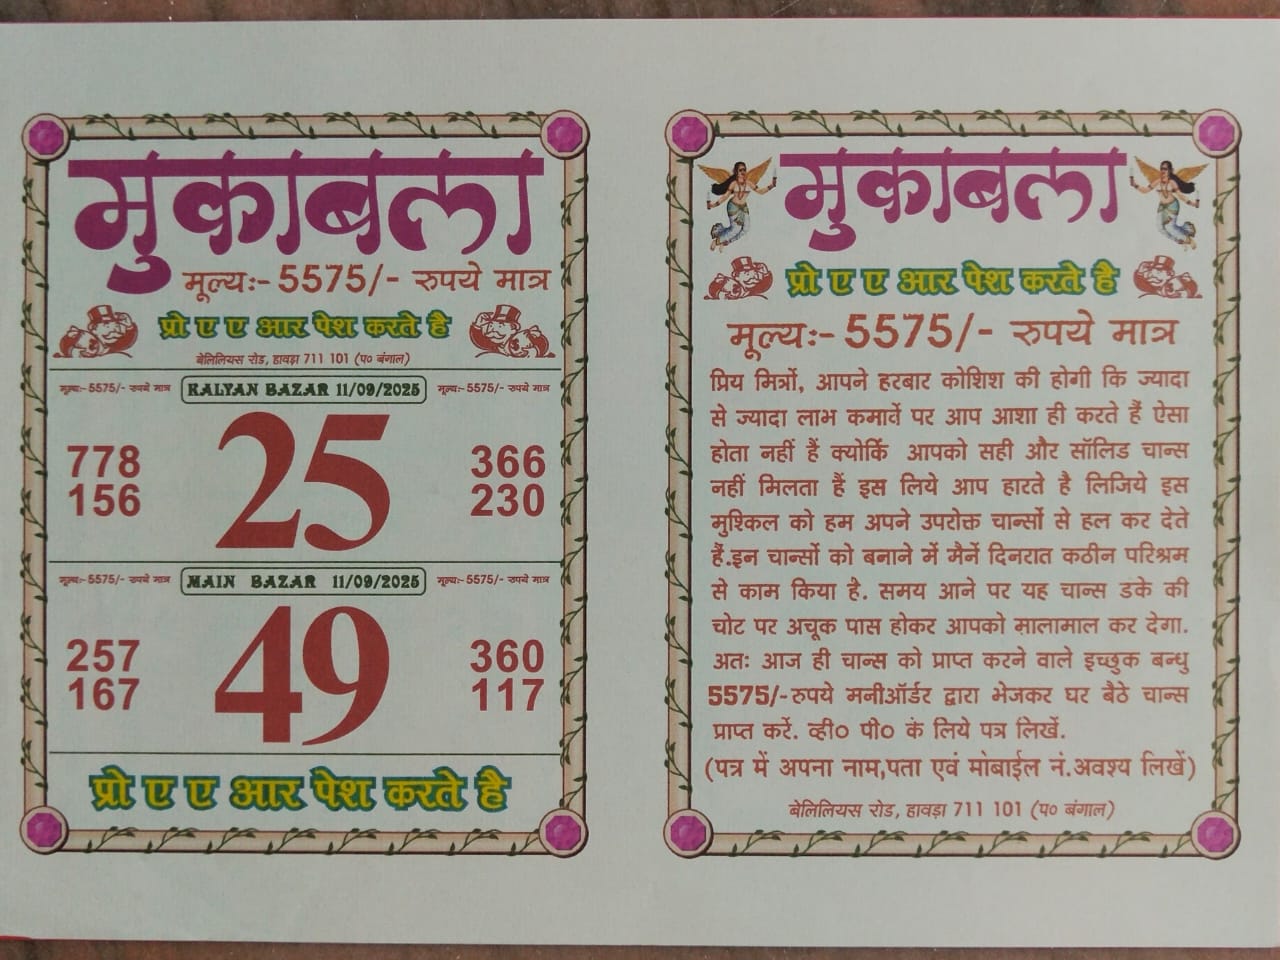 मुकाबला
मूल्यः- 5575/- रुपये मात्र
प्रो ए ए आर पेश करते है
बेलिलियस रोड, हावड़ा 711 101 (प० बंगाल)
मूल्यः- 5575/- रुपये मात्र KALYAN BAZAR 11/09/2025 मूल्यः- 5575/- रुपये मात्र
25
778 366
156 230
मूल्यः- 5575/- रुपये मात्र MAIN BAZAR 11/09/2025 मूल्यः- 5575/- रुपये मात्र
49
257 360
167 117
प्रो ए ए आर पेश करते है
मुकाबला
प्रो ए ए आर पेश करते है
मूल्यः- 5575/- रुपये मात्र
प्रिय मित्रों, आपने हरबार कोशिश की होगी कि ज्यादा
से ज्यादा लाभ कमावें पर आप आशा ही करते हैं ऐसा
होता नहीं हैं क्योकिं आपको सही और सॉलिड चान्स
नहीं मिलता हैं इस लिये आप हारते है लिजिये इस
मुश्किल को हम अपने उपरोक्त चान्सों से हल कर देते
हैं.इन चान्सों को बनाने में मैनें दिनरात कठीन परिश्रम
से काम किया है. समय आने पर यह चान्स डंके की
चोट पर अचूक पास होकर आपको मालामाल कर देगा.
अतः आज ही चान्स को प्राप्त करने वाले इच्छुक बन्धु
5575/-रुपये मनीऑर्डर द्वारा भेजकर घर बैठे चान्स
प्राप्त करें. व्ही० पी० के लिये पत्र लिखें.
(पत्र में अपना नाम,पता एवं मोबाईल नं.अवश्य लिखें)
बेलिलियस रोड, हावड़ा 711 101 (प० बंगाल)